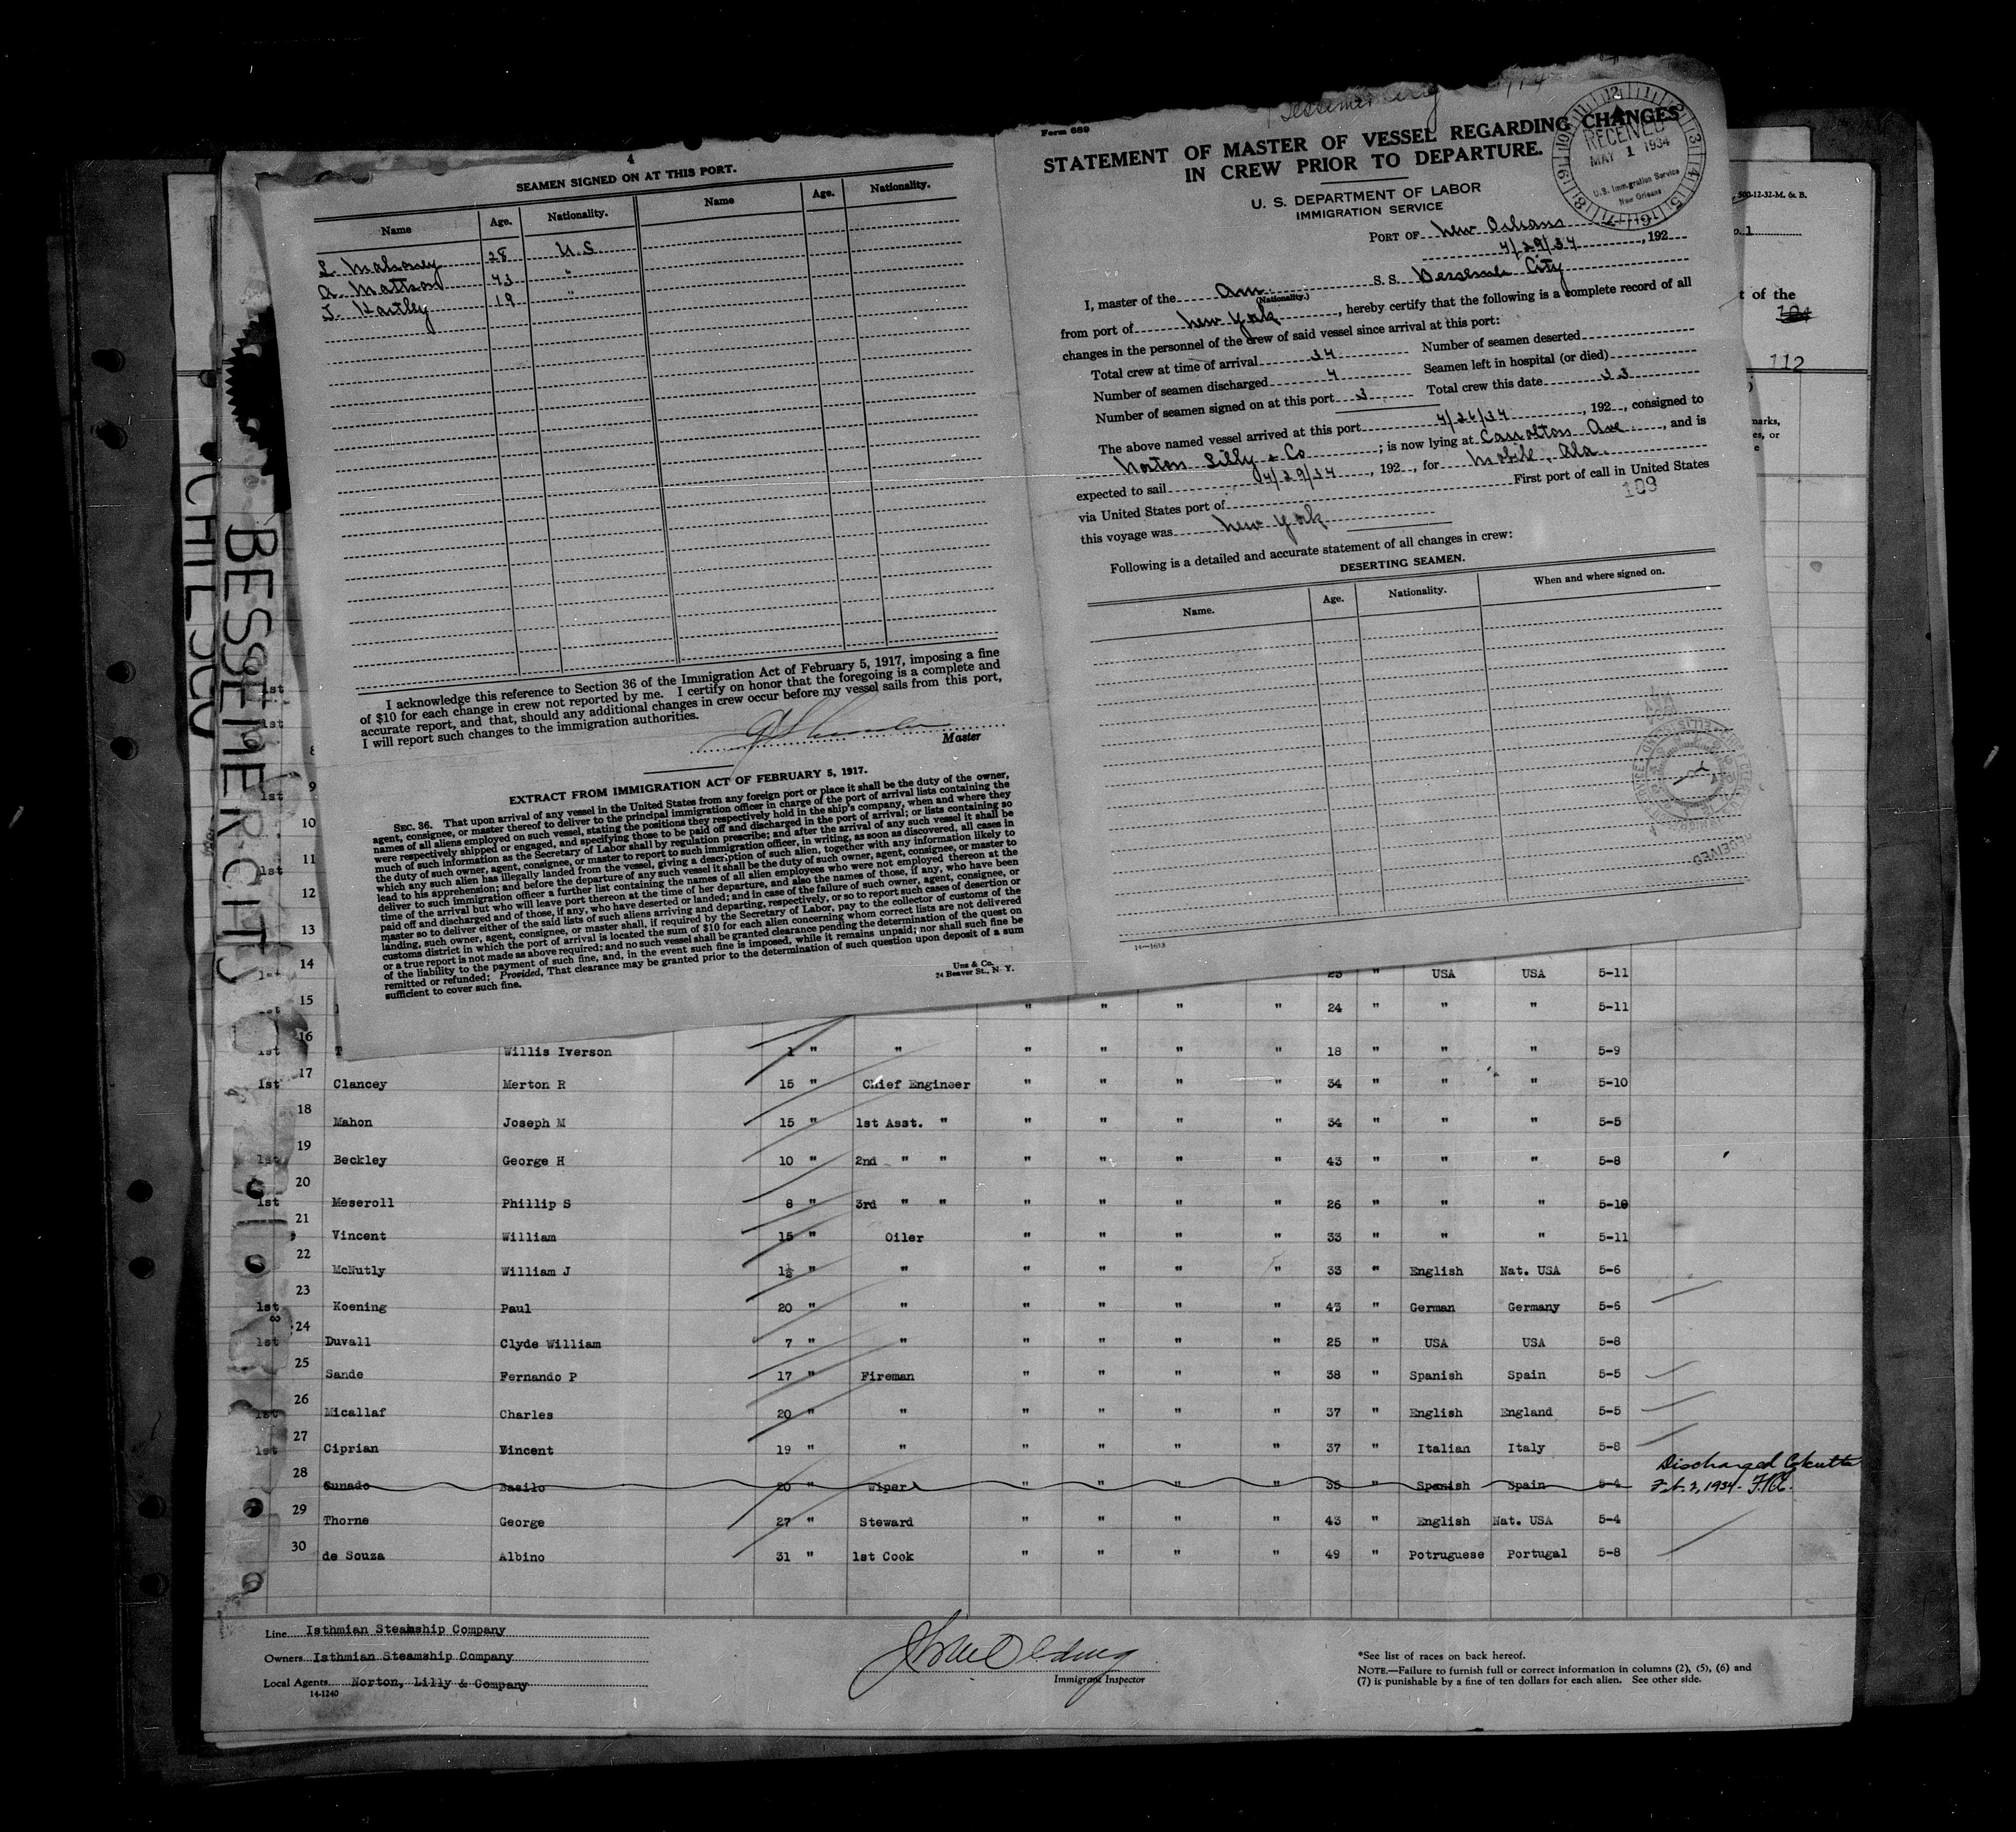 4
SEAMEN SIGNED ON AT THIS PORT.
Name Age. Nationality. Name Age. Nationality.
L. Mahoney 28 U.S
A. Mattson 43 "
J. Hartley 19 "
I acknowledge this reference to Section 36 of the Immigration Act of February 5, 1917, imposing a fine
of $10 for each change in crew not reported by me. I certify on honor that the foregoing is a complete and
accurate report, and that, should any additional changes in crew occur before my vessel sails from this port,
I will report such changes to the immigration authorities.
Master
EXTRACT FROM IMMIGRATION ACT OF FEBRUARY 5, 1917.
SEC. 36. That upon arrival of any vessel in the United States from any foreign port or place it shall be the duty of the owner,
agent, consignee, or master thereof to deliver to the principal immigration officer in charge of the port of arrival lists containing the
names of all aliens employed on such vessel, stating the positions they respectively hold in the ship's company, when and where they
were respectively shipped or engaged, and specifying those to be paid off and discharged in the port of arrival; or lists containing so
much of such information as the Secretary of Labor shall by regulation prescribe; and after the arrival of any such vessel it shall be
the duty of such owner, agent, consignee, or master to report to such immigration officer, in writing, as soon as discovered, all cases in
which any such alien has illegally landed from the vessel, giving a description of such alien, together with any information likely to
lead to his apprehension; and before the departure of any such vessel it shall be the duty of such owner, agent, consignee, or master to
deliver to such immigration officer a further list containing the names of all alien employees who were not employed thereon at the
time of the arrival but who will leave port thereon at the time of her departure, and also the names of those, if any, who have been
paid off and discharged and of those, if any, who have deserted or landed; and in case of the failure of such owner, agent, consignee, or
master so to deliver either of the said lists of such aliens arriving and departing, respectively, or so to report such cases of desertion or
landing, such owner, agent, consignee, or master shall, if required by the Secretary of Labor, pay to the collector of customs of the
customs district in which the port of arrival is located the sum of $10 for each alien concerning whom correct lists are not delivered
or a true report is not made as above required; and no such vessel shall be granted clearance pending the determination of the quest on
of the liability to the payment of such fine, and, in the event such fine is imposed, while it remains unpaid; nor shall such fine be
remitted or refunded; Provided, That clearance may be granted prior to the determination of such question upon deposit of a sum
sufficient to cover such fine.
Uns & Co.
24 Beaver St., N. Y.
Form 689
STATEMENT OF MASTER OF VESSEL REGARDING CHANGES
IN CREW PRIOR TO DEPARTURE.
RECEIVED
MAY 1 1934
U.S. Immigration Service
New Orleans
U. S. DEPARTMENT OF LABOR
IMMIGRATION SERVICE
PORT OF New Orleans
4/29/34, 192
I, master of the Am. S. S. Bessemer City
(Nationality.)
from port of New York, hereby certify that the following is a complete record of all
changes in the personnel of the crew of said vessel since arrival at this port:
Total crew at time of arrival 34 Number of seamen deserted
Number of seamen discharged 4 Seamen left in hospital (or died)
Number of seamen signed on at this port 3 Total crew this date 33
The above named vessel arrived at this port 4/26/34, 192, consigned to
Norton Lilly & Co; is now lying at Carrolton Ave, and is
expected to sail 4/29/34, 192, for Mobile, Ala.
via United States port of First port of call in United States
this voyage was New York
109
Following is a detailed and accurate statement of all changes in crew:
DESERTING SEAMEN.
Name. Age. Nationality. When and where signed on.
RECEIVED
14—1618
500-12-32-M. & B.
t of the
112
BESSEMER CITY
8
9
10
11
12
13
14 23 " USA USA 5-11
15 " " " " 24 " " " 5-11
16 Willis Iverson 1 " " " " " " 18 " " " 5-9
1st 17 Clancey Merton R 15 " Chief Engineer " " " " 34 " " " 5-10
18 Mahon Joseph M 15 " 1st Asst. " " " " " 34 " " " 5-5
1st 19 Beckley George H 10 " 2nd " " " " " " 43 " " " 5-8
1st 20 Meseroll Phillip S 8 " 3rd " " " " " " 26 " " " 5-10
21 Vincent William 15 " Oiler " " " " 33 " " " 5-11
22 McNutly William J 1½ " " " " " " 33 " English Nat. USA 5-6
1st 23 Koening Paul 20 " " " " " " 43 " German Germany 5-6
1st 24 Duvall Clyde William 7 " " " " " " 25 " USA USA 5-8
25 Sande Fernando P 17 " Fireman " " " " 38 " Spanish Spain 5-5
1st 26 Micallaf Charles 20 " " " " " " 37 " English England 5-5
1st 27 Ciprian Vincent 19 " " " " " " 37 " Italian Italy 5-8
28 Sunado Basilo 20 " Wiper " " " " 35 " Spanish Spain 5-4 Discharged Calcutta
Feb. 2, 1934.
29 Thorne George 27 " Steward " " " " 43 " English Nat. USA 5-4
30 de Souza Albino 31 " 1st Cook " " " " 49 " Potruguese Portugal 5-8
Line Isthmian Steamship Company
Owners Isthmian Steamship Company
Local Agents Norton, Lilly & Company
14-1240
Immigrant Inspector
*See list of races on back hereof.
NOTE.—Failure to furnish full or correct information in columns (2), (5), (6) and
(7) is punishable by a fine of ten dollars for each alien. See other side.